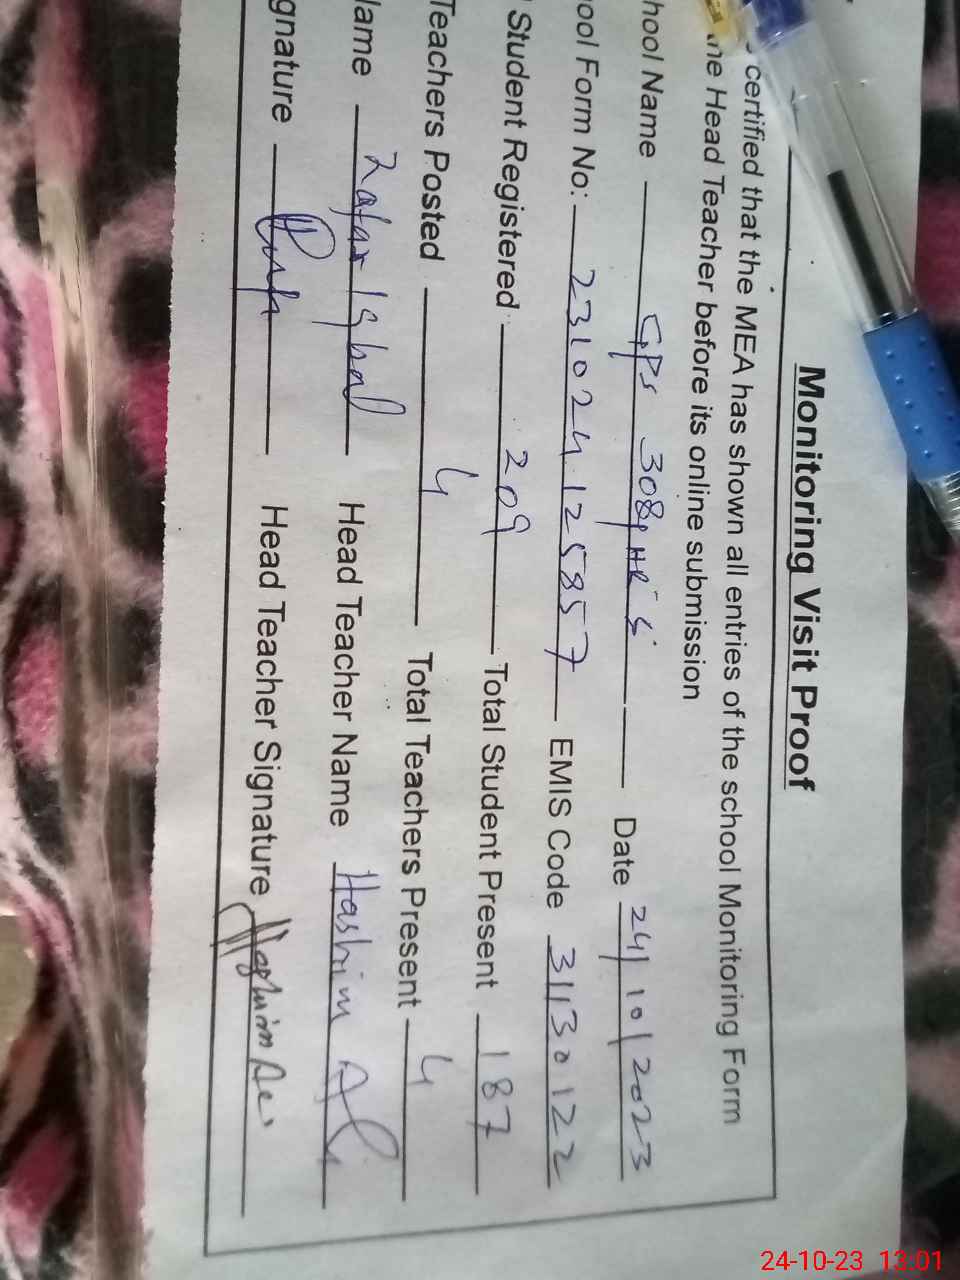 Monitoring Visit Proof
certified that the MEA has shown all entries of the school Monitoring Form
the Head Teacher before its online submission
hool Name GPS 308, HR Date 24/10/2023
ool Form No: 23102412587 EMIS Code 31130122
Student Registered 209 Total Student Present 187
Teachers Posted 4 Total Teachers Present 4
ame Zafar Iqbal Head Teacher Name Hashim Ali
gnature Head Teacher Signature Hashim
24-10-23 13:01